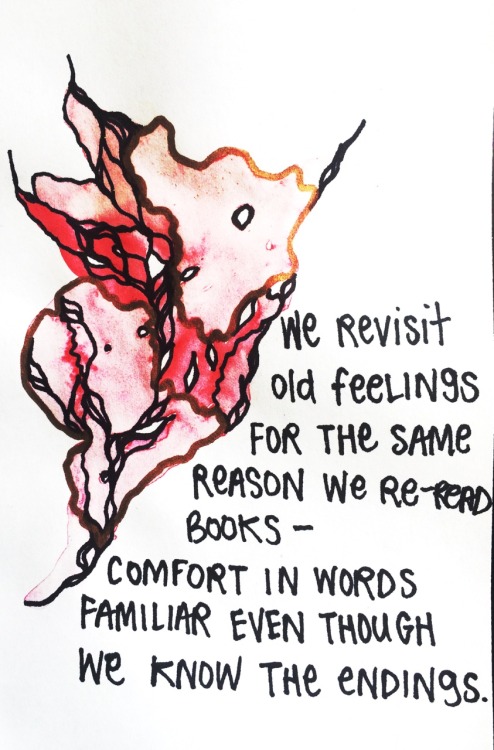 We Revisit
old feeLINgs
FOR THE SAME
REASON We RE-READ
BOOKS –
COMFORT IN WORDS
FAMILIAR EVEN THOUGH
We KNOW THe eNDINgs.